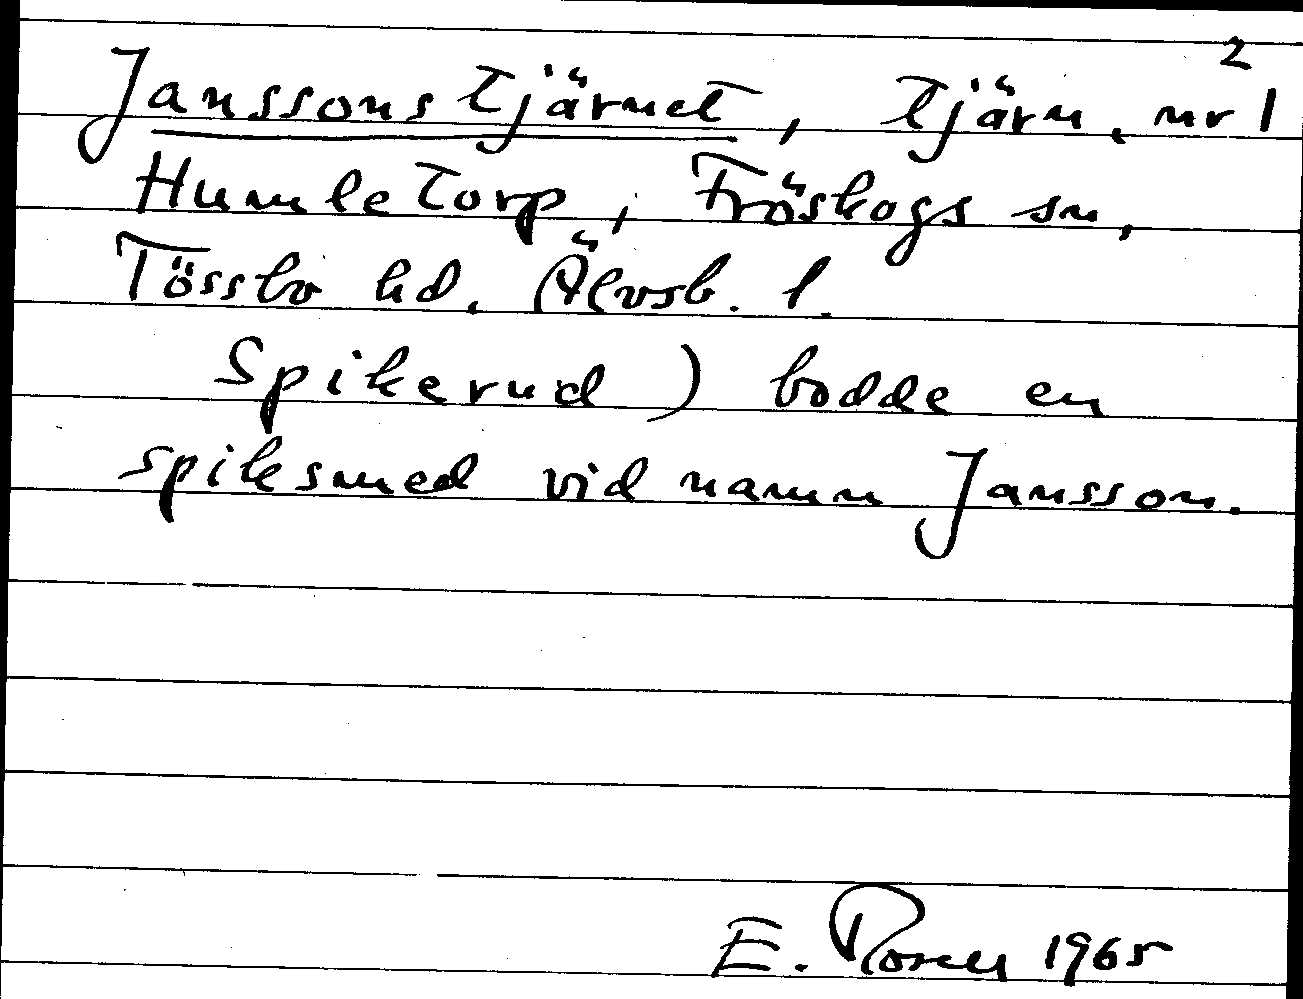 2
Janssonstjärnet, tjärn, nr 1
Humletorp, Fröskogs sn,
Tössbo hd. Älvsb. l.
Spikerud) bodde en
spiksmed vid namn Jansson.
E. Rosell 1965